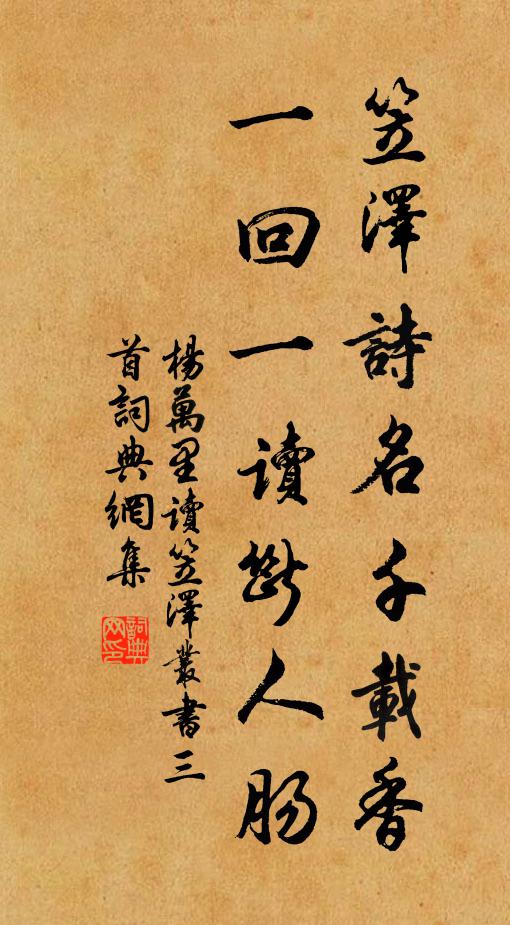 笠澤詩名千載香
一回一讀斷人腸
楊萬里讀笠澤叢書三
首詞典網集
詞典网印